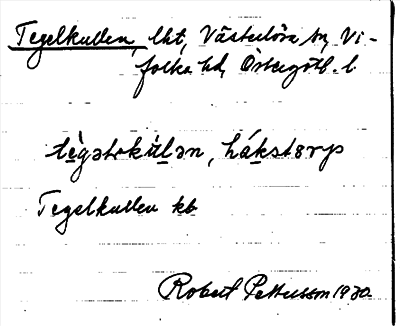 Tegelkullen, lht, Västerlösa sn, Vi-
folka hd, Östergötl. l.
Tegelkullen kb
Robert Pettersson 1930.